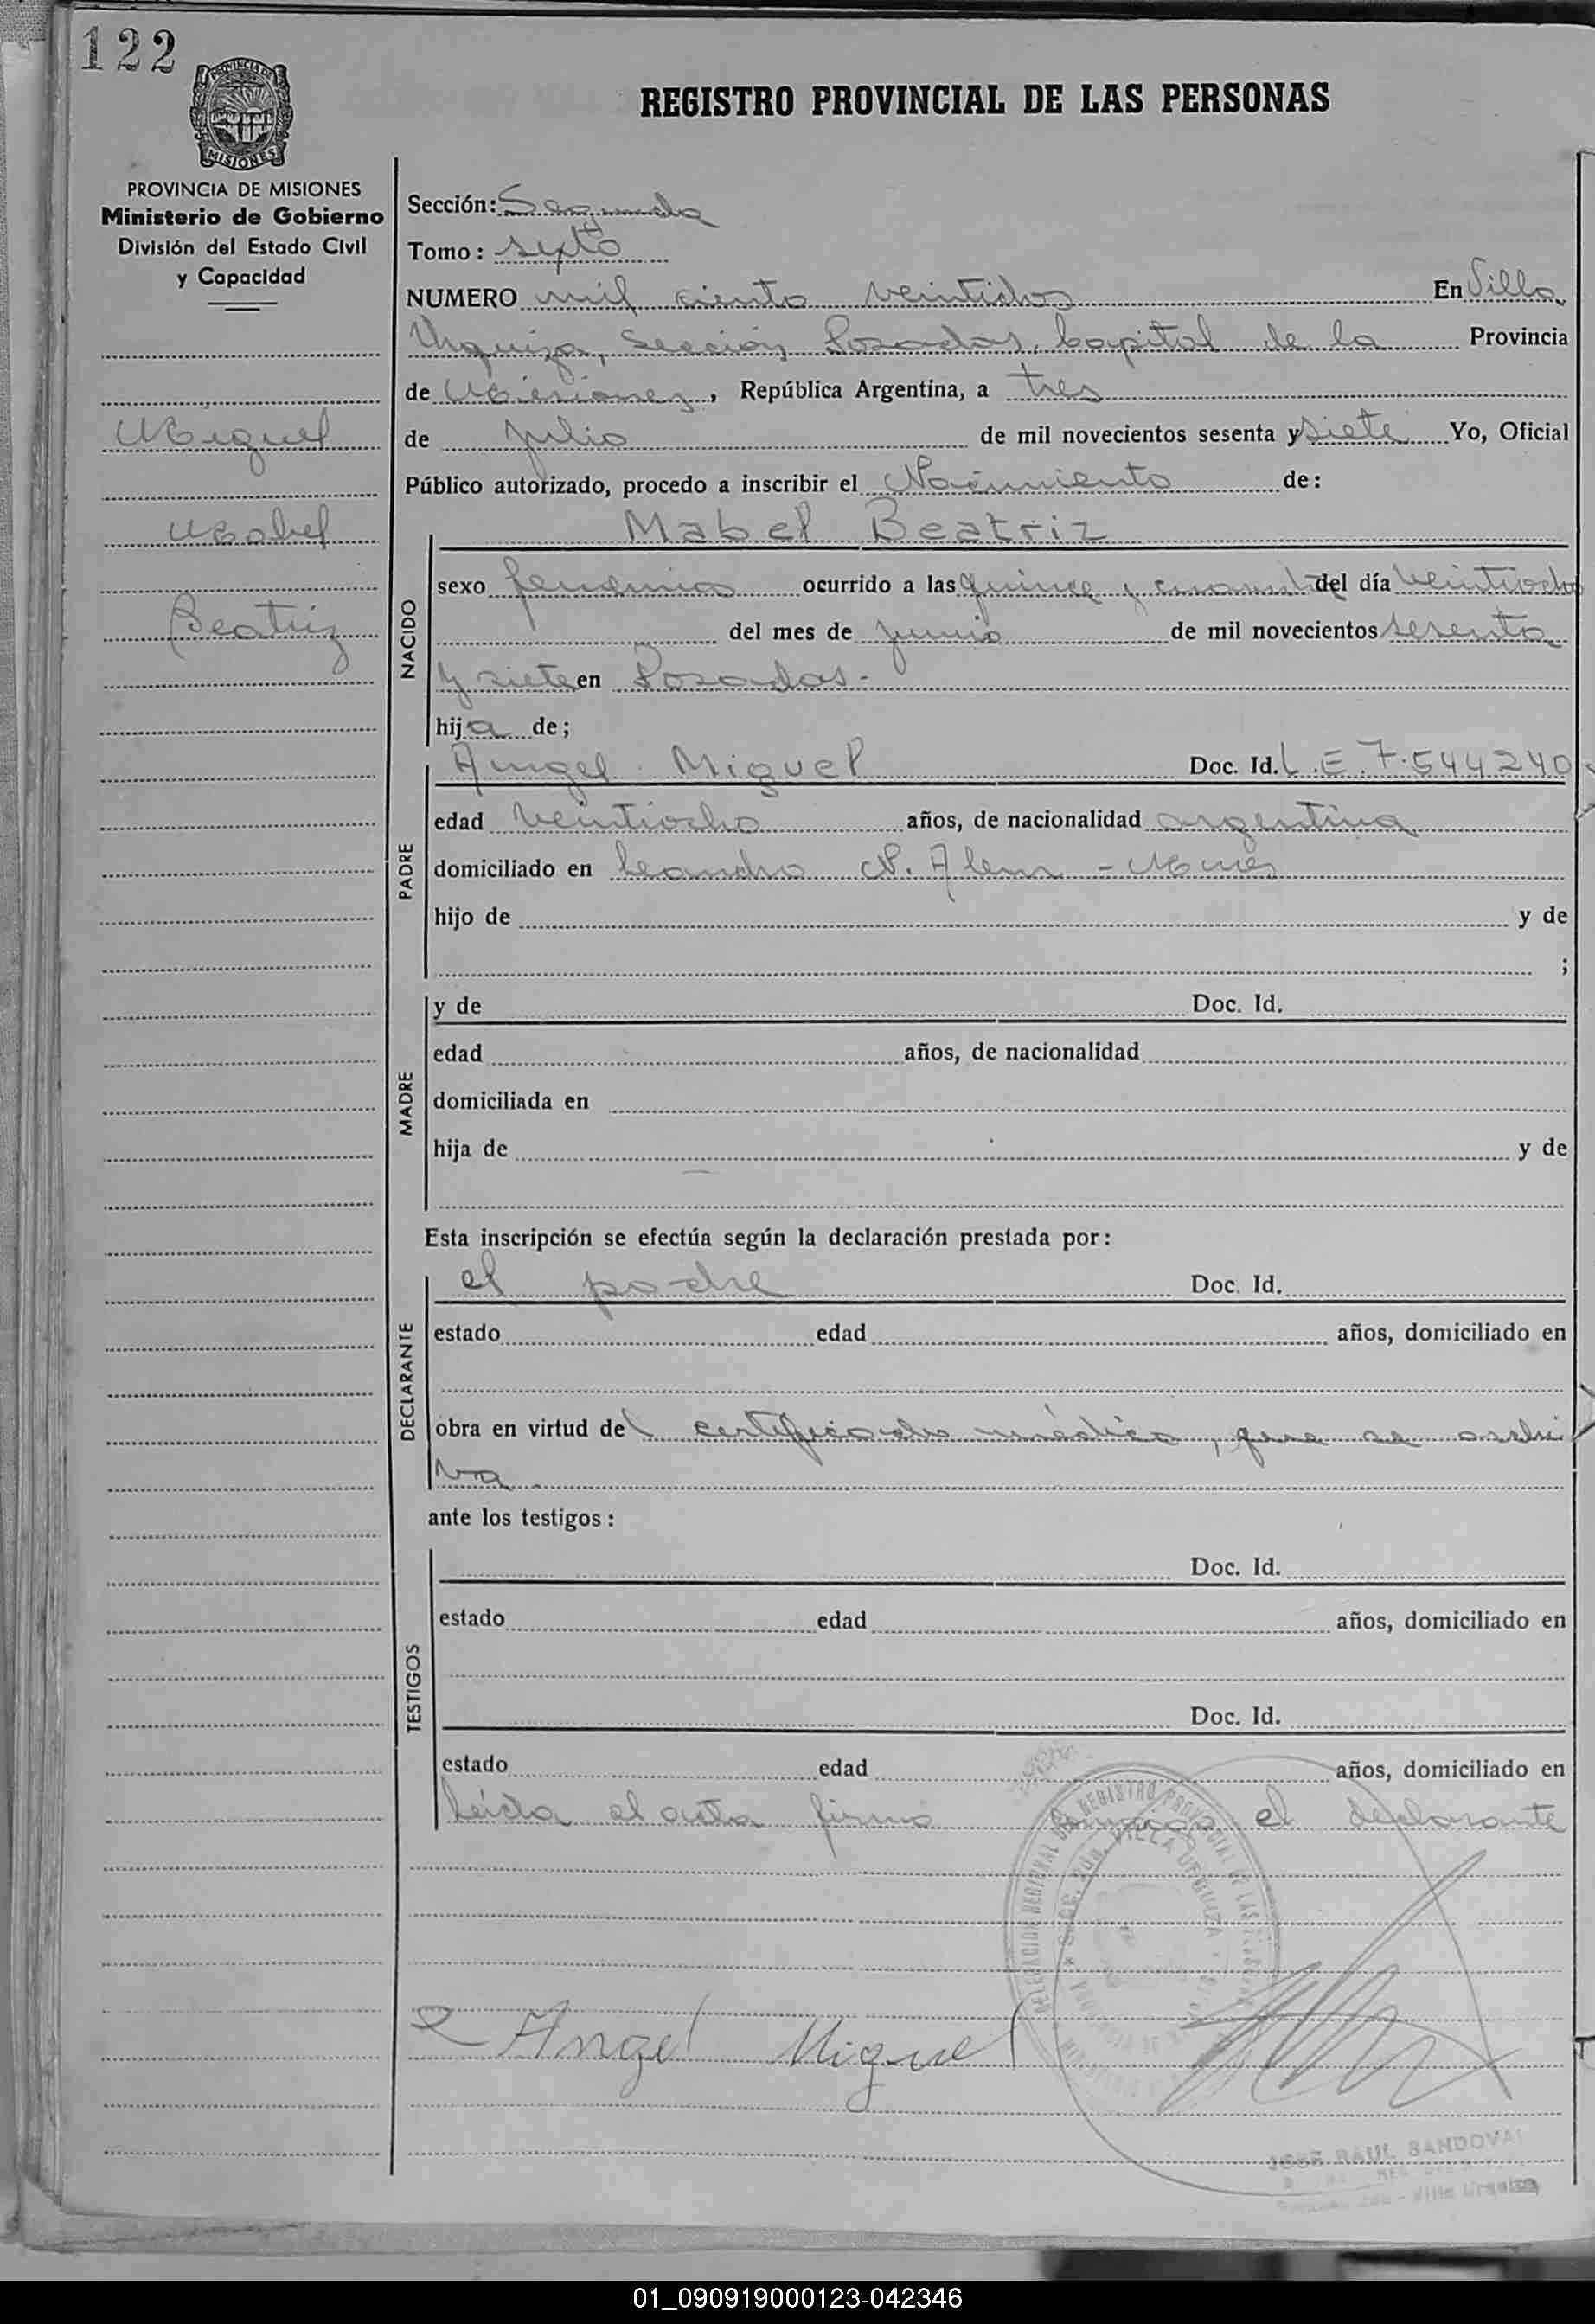 122
PROVINCIA DE MISIONES
MISIONES
REGISTRO PROVINCIAL DE LAS PERSONAS
PROVINCIA DE MISIONES
Ministerio de Gobierno
División del Estado Civil
y Capacidad
Miguel
Mabel
Beatriz
Sección: Segunda
Tomo: sexto
NUMERO mil ciento veintidos En Villa
Urquiza, Sección Posadas, Capital de la Provincia
de Misiones, República Argentina, a tres
de julio de mil novecientos sesenta y siete Yo, Oficial
Público autorizado, procedo a inscribir el Nacimiento de:
NACIDO
Mabel Beatriz
sexo femenino ocurrido a las quince y cuarenta del día veintiocho
del mes de junio de mil novecientos sesenta
y siete en Posadas.-
hija de;
PADRE
Angel Miguel Doc. Id. L.E. 7.544240
edad veintiocho años, de nacionalidad argentina
domiciliado en Leandro N. Alem - Mnes
hijo de y de
;
MADRE
y de Doc. Id.
edad años, de nacionalidad
domiciliada en
hija de y de
Esta inscripción se efectúa según la declaración prestada por:
DECLARANTE
el padre Doc. Id.
estado edad años, domiciliado en
obra en virtud del certificado médico, que se archi
va.
ante los testigos:
TESTIGOS
Doc. Id.
estado edad años, domiciliado en
Doc. Id.
estado edad años, domiciliado en
Leida el acta firma el declarante
DELEGACION REGIONAL DEL REGISTRO PROVINCIAL DE LAS PERSONAS
VILLA URQUIZA
Angel Miguel
JOSE RAUL SANDOVAL
Villa Urquiza
01_090919000123-042346